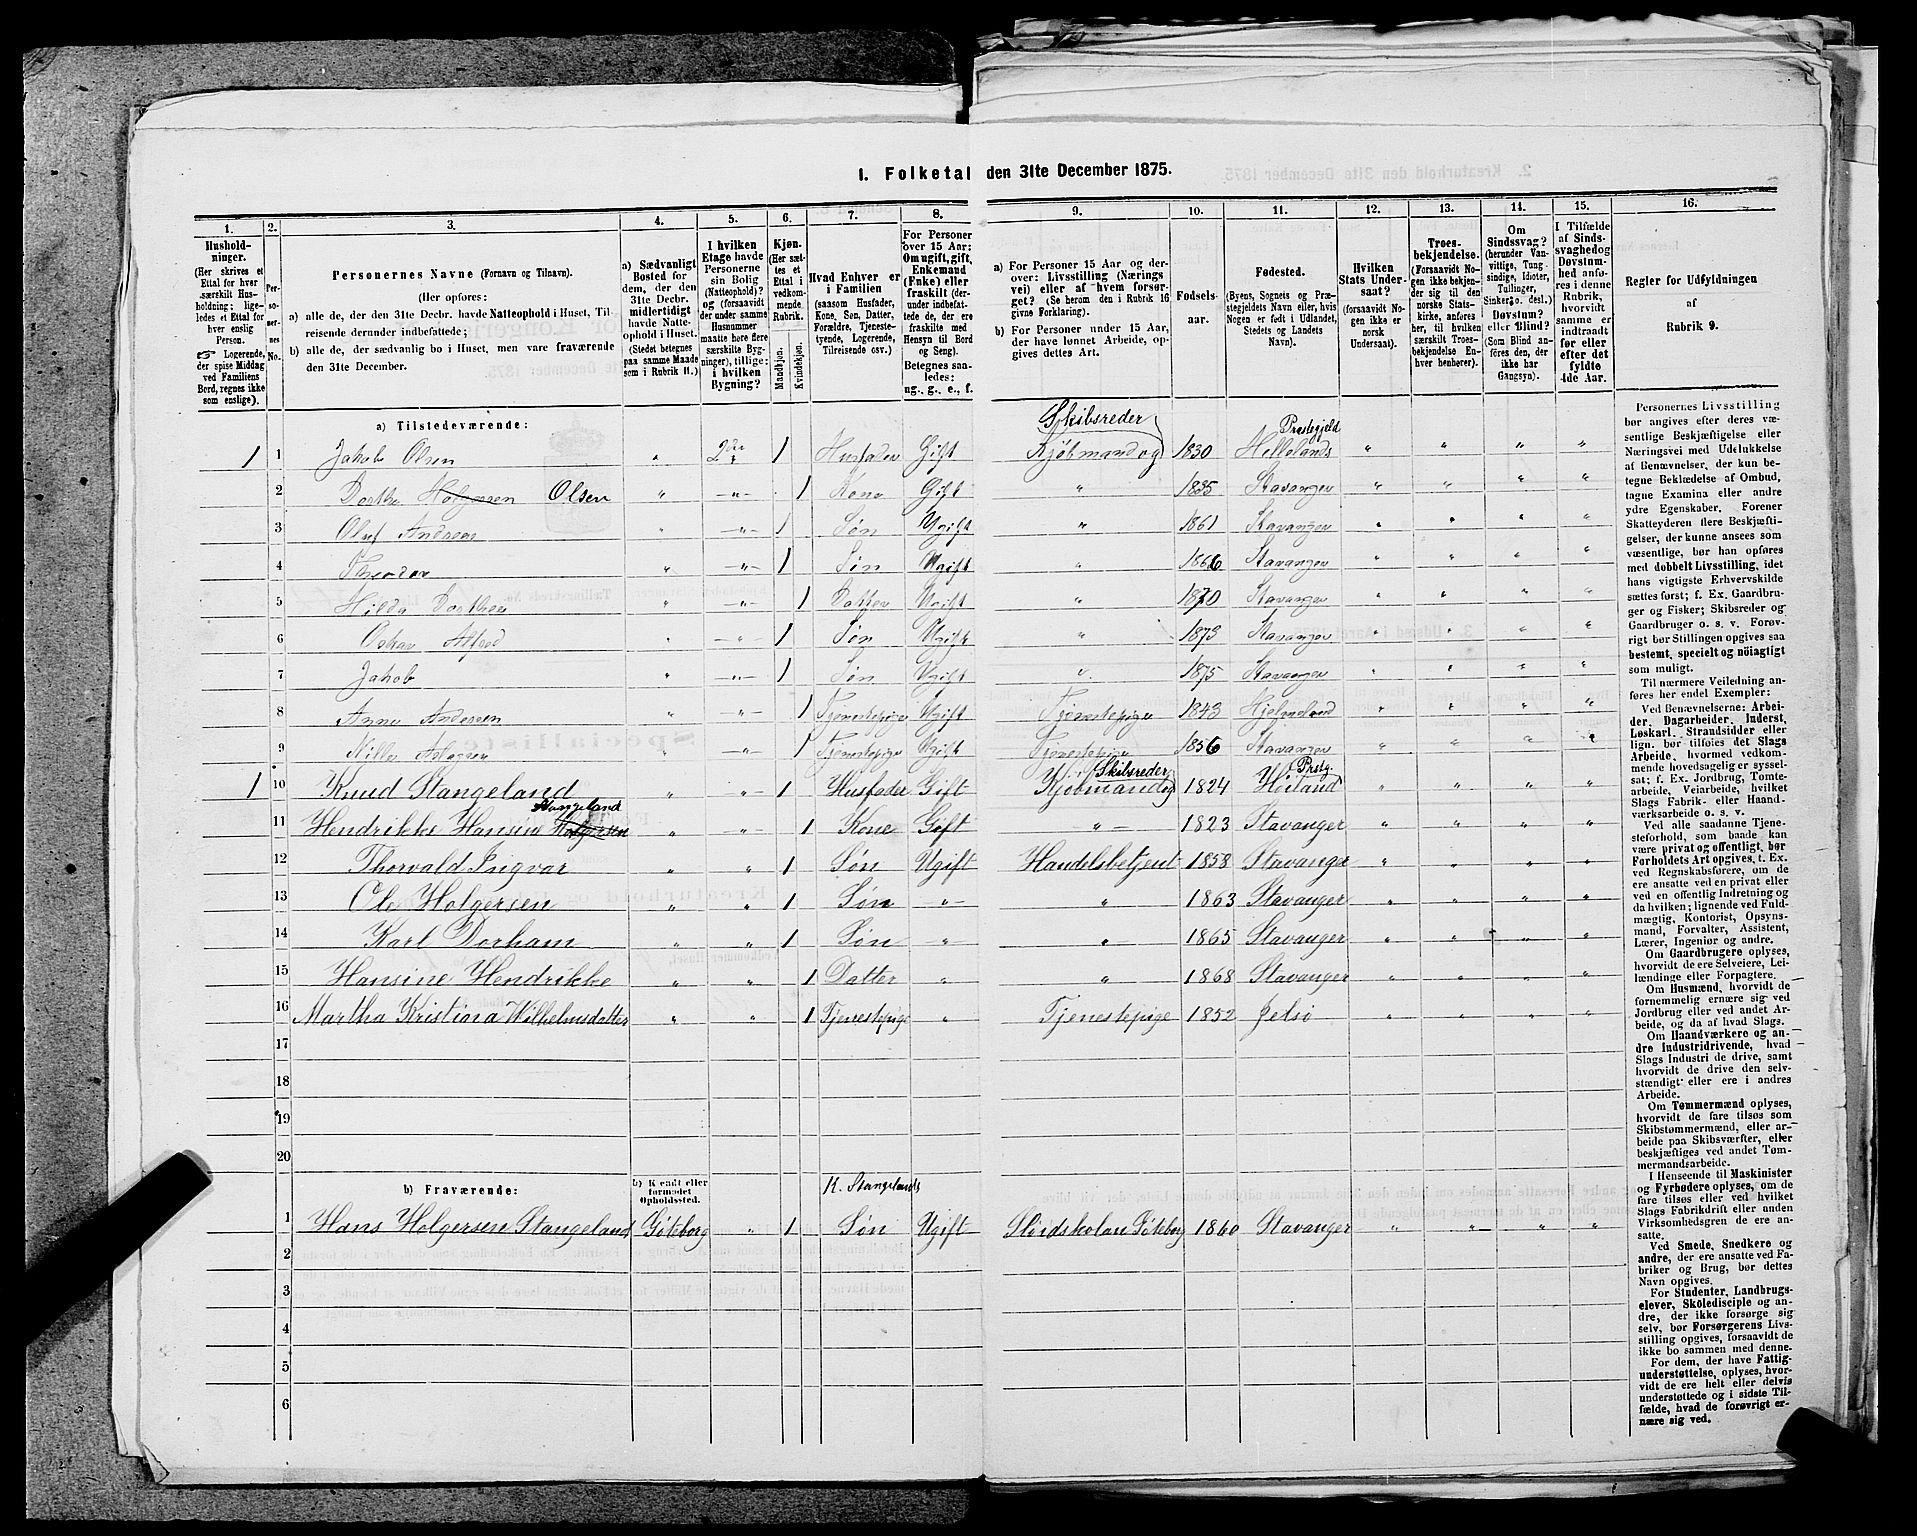 1. Folketal den 31te December 1875.
1. 2. 3. 4. 5. 6. 7. 8. 9. 10. 11. 12. 13. 14. 15. 16.
Hushold-
ninger.
(Her skrives et
Ettal for hver
særskilt Hus-
holdning; lige-
ledes et Ettal for
hver enslig
Person.
☞ Logerende,
der spise Middag
ved Familiens
Bord, regnes ikke
som enslige).
Per-
so-
ner-
nes
No.
Personernes Navne (Fornavn og Tilnavn).
(Her opføres:
a) alle de, der den 31te Decbr. havde Natteophold i Huset, Til-
reisende derunder indbefattede;
b) alle de, der sædvanlig bo i Huset, men vare fraværende
den 31te December.
a) Sædvanligt
Bosted for
dem, der den
31te Decbr.
midlertidigt
havde Natte-
ophold i Huset.
(Stedet betegnes
paa samme Maade
som i Rubrik 11.)
I hvilken
Etage havde
Personerne
sin Bolig
(Natteophold)?
og (forsaavidt
der under samme
Husnummer
maatte høre flere
særskilte Byg-
ninger), tillige:
i hvilken
Bygning?
Kjøn.
(Her sæt-
tes et
Ettal i
vedkom.
Rubrik.
Mandkjøn.
Kvindekjøn.
Hvad Enhver er
i Familien
(saasom Husfader,
Kone, Søn, Datter,
Forældre, Tjeneste-
tyende, Logerende,
Tilreisende osv.)
For Personer
over 15 Aar:
Om ugift, gift,
Enkemand
(Enke) eller
fraskilt (der-
under indbefat-
tede de, der ere
fraskilte med
Hensyn til Bord
og Seng).
Betegnes saa-
ledes:
ug., g., e., f.
a) For Personer 15 Aar og der-
over: Livsstilling (Nærings
vei) eller af hvem forsør-
get? (Se herom den i Rubrik 16
givne Forklaring).
b) For Personer under 15 Aar,
der have lønnet Arbeide, op-
gives dettes Art.
Fødsels-
aar.
Fødested.
(Byens, Sognets og Præ-
stegjeldets Navn eller, hvis
Nogen er født i Udlandet,
Stedets og Landets
Navn).
Hvilken
Stats Under-
saat?
(forsaavidt No-
gen ikke er
norsk
Undersaat).
Troes-
bekjendelse.
(Forsaavidt No-
gen ikke bekjen-
der sig til den
norske Stats-
kirke, anføres
her, til hvilken
særskilt Troes-
bekjendelse En-
hver henhører).
Om
Sindssvag?
(herunder Van-
vittige, Tung-
sindige, Idioter,
Tullinger,
Sinker o. desl.)
Døvstum?
eller Blind?
(Som Blind an-
føres den, der
ikke har
Gangsyn).
I Tilfælde
af Sinds-
svaghed og
Døvstum-
hed anfø-
res i denne
Rubrik,
hvorvidt
samme er
indtraadt
før eller
efter det
fyldte
4de Aar.
Regler for Udfyldningen
af
Rubrik 9.
a) Tilstedeværende:
1 1 Jakob Olsen " 2den 1 Husfader Gift Kjøbmand og Skibsreder 1830 Hellelands Præstegjeld " " " "
2 Dorthe Holgersen Olsen " —"— 1 Kone Gift " 1835 Stavanger " " " "
3 Oluf Andreas " —"— 1 Søn Ugift " 1861 Stavanger " " " "
4 Theodor " —"— 1 Søn Ugift " 1866 Stavanger " " " "
5 Hilda Dorthea " —"— 1 Datter Ugift " 1870 Stavanger " " " "
6 Oskar Alfred " —"— 1 Søn Ugift " 1873 Stavanger " " " "
7 Jakob " —"— 1 Søn Ugift " 1875 Stavanger " " " "
8 Anne Andersen " —"— 1 Tjenestepige Ugift Tjenestepige 1843 Hjelmeland " " " "
9 Nille Aslagsen " —"— 1 Tjenestepige Ugift Tjenestepige 1856 Stavanger " " " "
1 10 Knud Stangeland " " 1 Husfader Gift Kjøbmand og Skibsreder 1824 Høiland Prstg. " " " "
11 Hendrikke Hansine Holgersen Stangeland " —"— 1 Kone Gift —"— 1823 Stavanger " " " "
12 Thorvald Ingvar " " 1 Søn Ugift Handelsbetjent 1858 Stavanger " " " "
13 Ole Holgersen " " 1 Søn —"— " 1863 Stavanger " " " "
14 Karl Dorham " " 1 Søn " " 1865 Stavanger " " " "
15 Hansine Hendrikke " " 1 Datter " " 1868 Stavanger " " " "
16 Martha Kristiana Wilhelmsdatter " " 1 Tjenestepige " Tjenestepige 1852 Jelsø " " " "
17
18
19
20
b) Fraværende:
b) Kjendt eller
formodet
Opholdssted.
K. Stangelands
1 Hans Holgersen Stangeland Göteborg " 1 Søn Ugift Slöidskolan Göteborg 1860 Stavanger " " " "
2
3
4
5
6
Personernes Livsstilling
bør angives efter deres væ-
sentlige Beskjæftigelse eller
Næringsvei med Udelukkelse
af Benævnelser, der kun be-
tegne Beklædelse af Ombud,
tagne Examina eller andre
ydre Egenskaber. Forener
Skatteyderen flere Beskjæfti-
gelser, der kunne ansees som
væsentlige, bør han opføres
med dobbelt Livsstilling, idet
hans vigtigste Erhvervskilde
sættes først; f. Ex. Gaardbru-
ger og Fisker; Skibsreder og
Gaardbruger o. s. v. Forøv-
rigt bør Stillingen opgives saa
bestemt, specielt og nøiagtigt
som muligt.
Til nærmere Veiledning an-
føres her endel Exempler:
Ved Benævnelserne: Arbei-
der, Dagarbeider, Inderst,
Løskarl, Strandsidder eller
lign. bør tilføies det Slags
Arbeide, hvormed vedkom-
mende hovedsagelig er syssel-
sat; f. Ex. Jordbrug, Tomte-
arbeide, Veiarbeide, hvilket
Slags Fabrik- eller Haand-
værksarbeide o. s. v.
Ved alle saadanne Tjene-
steforhold, som baade kan
være privat og offentligt, bør
Forholdets Art opgives, t. Ex.
ved Regnskabsførere, om de
ere ansatte ved en privat eller
ved en offentlig Indretning og
da hvilken; lignende ved Fuld-
mægtig, Kontorist, Opsyns-
mand, Forvalter, Assistent,
Lærer, Ingeniør og andre.
Om Gaardbrugere oplyses,
hvorvidt de ere Selveiere, Lei-
lændinge eller Forpagtere.
Om Husmænd, hvorvidt de
fornemmelig ernære sig ved
Jordbrug eller ved andet Ar-
beide, og da af hvad Slags.
Om Haandværkere og an-
dre Industridrivende, hvad
Slags Industri de drive, samt
hvorvidt de drive den selv-
stændigt eller ere i andres
Arbeide.
Om Tømmermænd oplyses,
hvorvidt de fare tilsøs som
Skibstømmermænd, eller ar-
beide paa Skibsværfter, eller
beskjæftiges ved andet Tøm-
mermandsarbeide.
I Henseende til Maskinister
og Fyrbødere oplyses, om de
fare tilsøs eller ved hvilket
Slags Fabrikdrift eller anden
Virksomhed de ere an-
satte.
Ved Smede, Snedkere og
andre, der ere ansatte ved Fa-
briker og Brug, bør dettes
Navn opgives.
For Studenter, Landbrugs-
elever, Skoledisciple og an-
dre, der ikke forsørge sig
selv, bør Forsørgerens Livs-
stilling opgives, forsaavidt de
ikke bo sammen med denne.
For dem, der have Fattig-
understøttelse, oplyses, hvor-
vidt de ere helt eller delvis
understøttede og i sidste Til-
fælde, hvad de forøvrigt er-
nære sig ved.